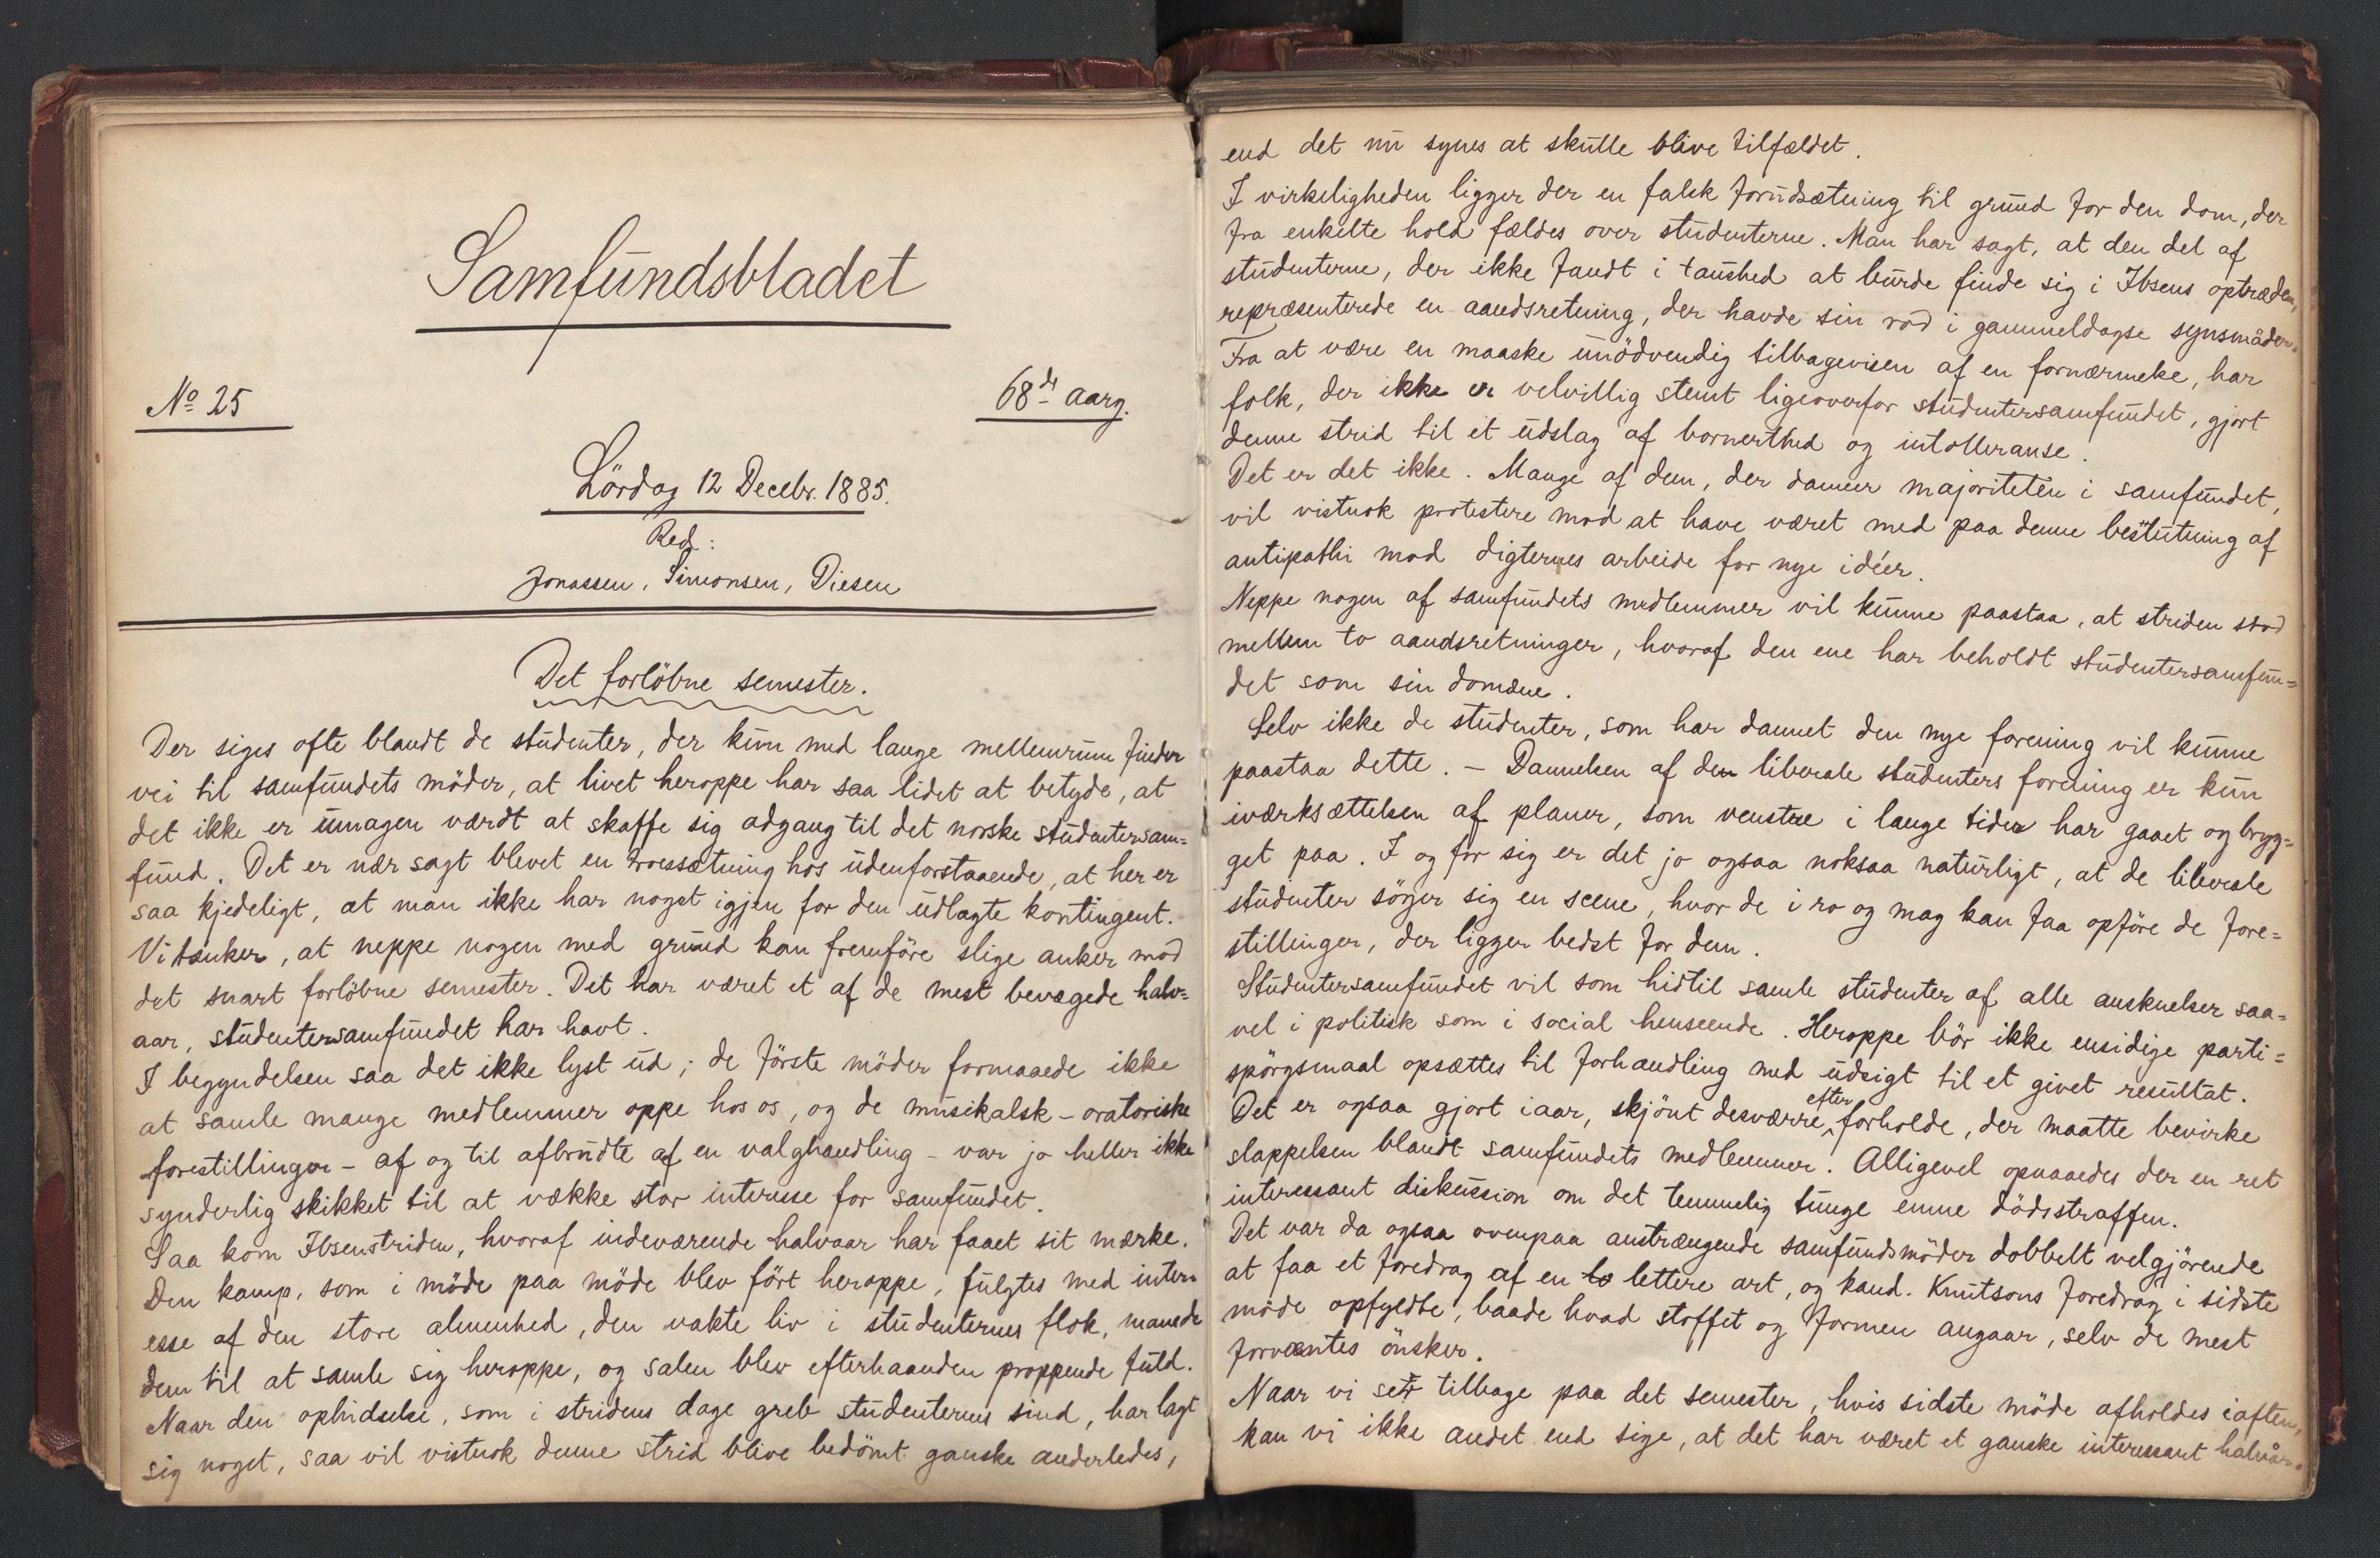 Samfundsbladet
No 25
68de aarg.
Lördag 12 Decebr. 1885.
Red:
Jonassen, Simonsen, Diesen
Det forlöbne semester.
Der siges ofte blandt de studenter, der kun med lange mellemrum finder
vei til samfundets möder, at livet heroppe har saa lidet at betyde, at
det ikke er umagen værdt at skaffe sig adgang til det norske studentersam=
fund. Det er nær sagt blevet en troessætning hos udenforstaaende, at her er
saa kjedeligt, at man ikke har noget igjen for den udlagte kontingent.
Vi tænker, at neppe nogen med grund kan fremföre slige anker mod
det snart forlöbne semester. Det har været et af de mest bevægede halv=
aar, studentersamfundet har havt.
I begyndelsen saa det ikke lyst ud; de förste möder formaaede ikke
at samle mange medlemmer oppe hos os, og de musikalsk-oratoriske
forestillinger - af og til afbrudte af en valghandling - var jo heller ikke
synderlig skikket til at vække stor interesse for samfundet.
Saa kom Ibsenstriden, hvoraf indeværende halvaar har faaet sit mærke.
Den kamp, som i möde paa möde blev fört heroppe, fulgtes med inter=
esse af den store almenhed, den vakte liv i studenternes flok, manede
dem til at samle sig heroppe, og salen blev efterhaanden proppende fuld.
Naar den ophidselse, som i stridens dage greb studenternes sind, har lagt
sig noget, saa vil vistnok denne strid blive bedömt ganske anderledes,
end det nu synes at skulle blive tilfældet.
I virkeligheden ligger der en falsk forudsætning til grund for den dom, der
fra enkelte hold fældes over studenterne. Man har sagt, at den del af
studenterne, der ikke fandt i taushed at burde finde sig i Ibsens optræden,
repræsenterede en aandsretning, der havde sin rod i gammeldagse synsmåder.
Fra at være en maaske unödvendig tilbagevisen af en fornærmelse, har
folk, der ikke er velvillig stemt ligeoverfor studentersamfundet, gjort
denne strid til et udslag af bornerthed og intolleranse.
Det er det ikke. Mange af dem, der danner majoriteten i samfundet,
vil vistnok protestere mod at have været med paa denne beslutning af
antipathi mod digternes arbeide for nye idéer.
Neppe nogen af samfundets medlemmer vil kunne paastaa, at striden stod
mellem to aandsretninger, hvoraf den ene har beholdt studentersamfun=
det som sin domæne.
Selv ikke de studenter, som har dannet den nye forening vil kunne
paastaa dette. - Dannelsen af den liberale studenters forening er kun
iværksættelsen af planer, som venstre i lange tider har gaaet og bryg=
get paa. I og for sig er det jo ogsaa noksaa naturligt, at de liberale
studenter söger sig en scene, hvor de i ro og mag kan faa opföre de fore=
stillinger, der ligger bedst for dem.
Studentersamfundet vil som hidtil samle studenter af alle anskuelser saa=
vel i politisk som i social henseende. Heroppe bör ikke ensidige parti=
spörgsmaal opsættes til forhandling med udsigt til et givet resultat.
Det er ogsaa gjort iaar, skjönt desværre efter forholde, der maatte bevirke
slappelsen blandt samfundets medlemmer. Alligevel opnaaedes der en ret
interessant diskussion om det temmelig tunge emne dödsstraffen.
Det var da ogsaa ovenpaa anstrængende samfundsmöder dobbelt velgjörende
at faa et foredrag af en to lettere art, og kand. Knutsons foredrag i sidste
möde opfyldte, baade hvad stoffet og formen angaar, selv de mest
forvæntes önsker.
Naar vi ser tilbage paa det semester, hvis sidste möde afholdes iaften,
kan vi ikke andet end sige, at det har været et ganske interessant halvår.